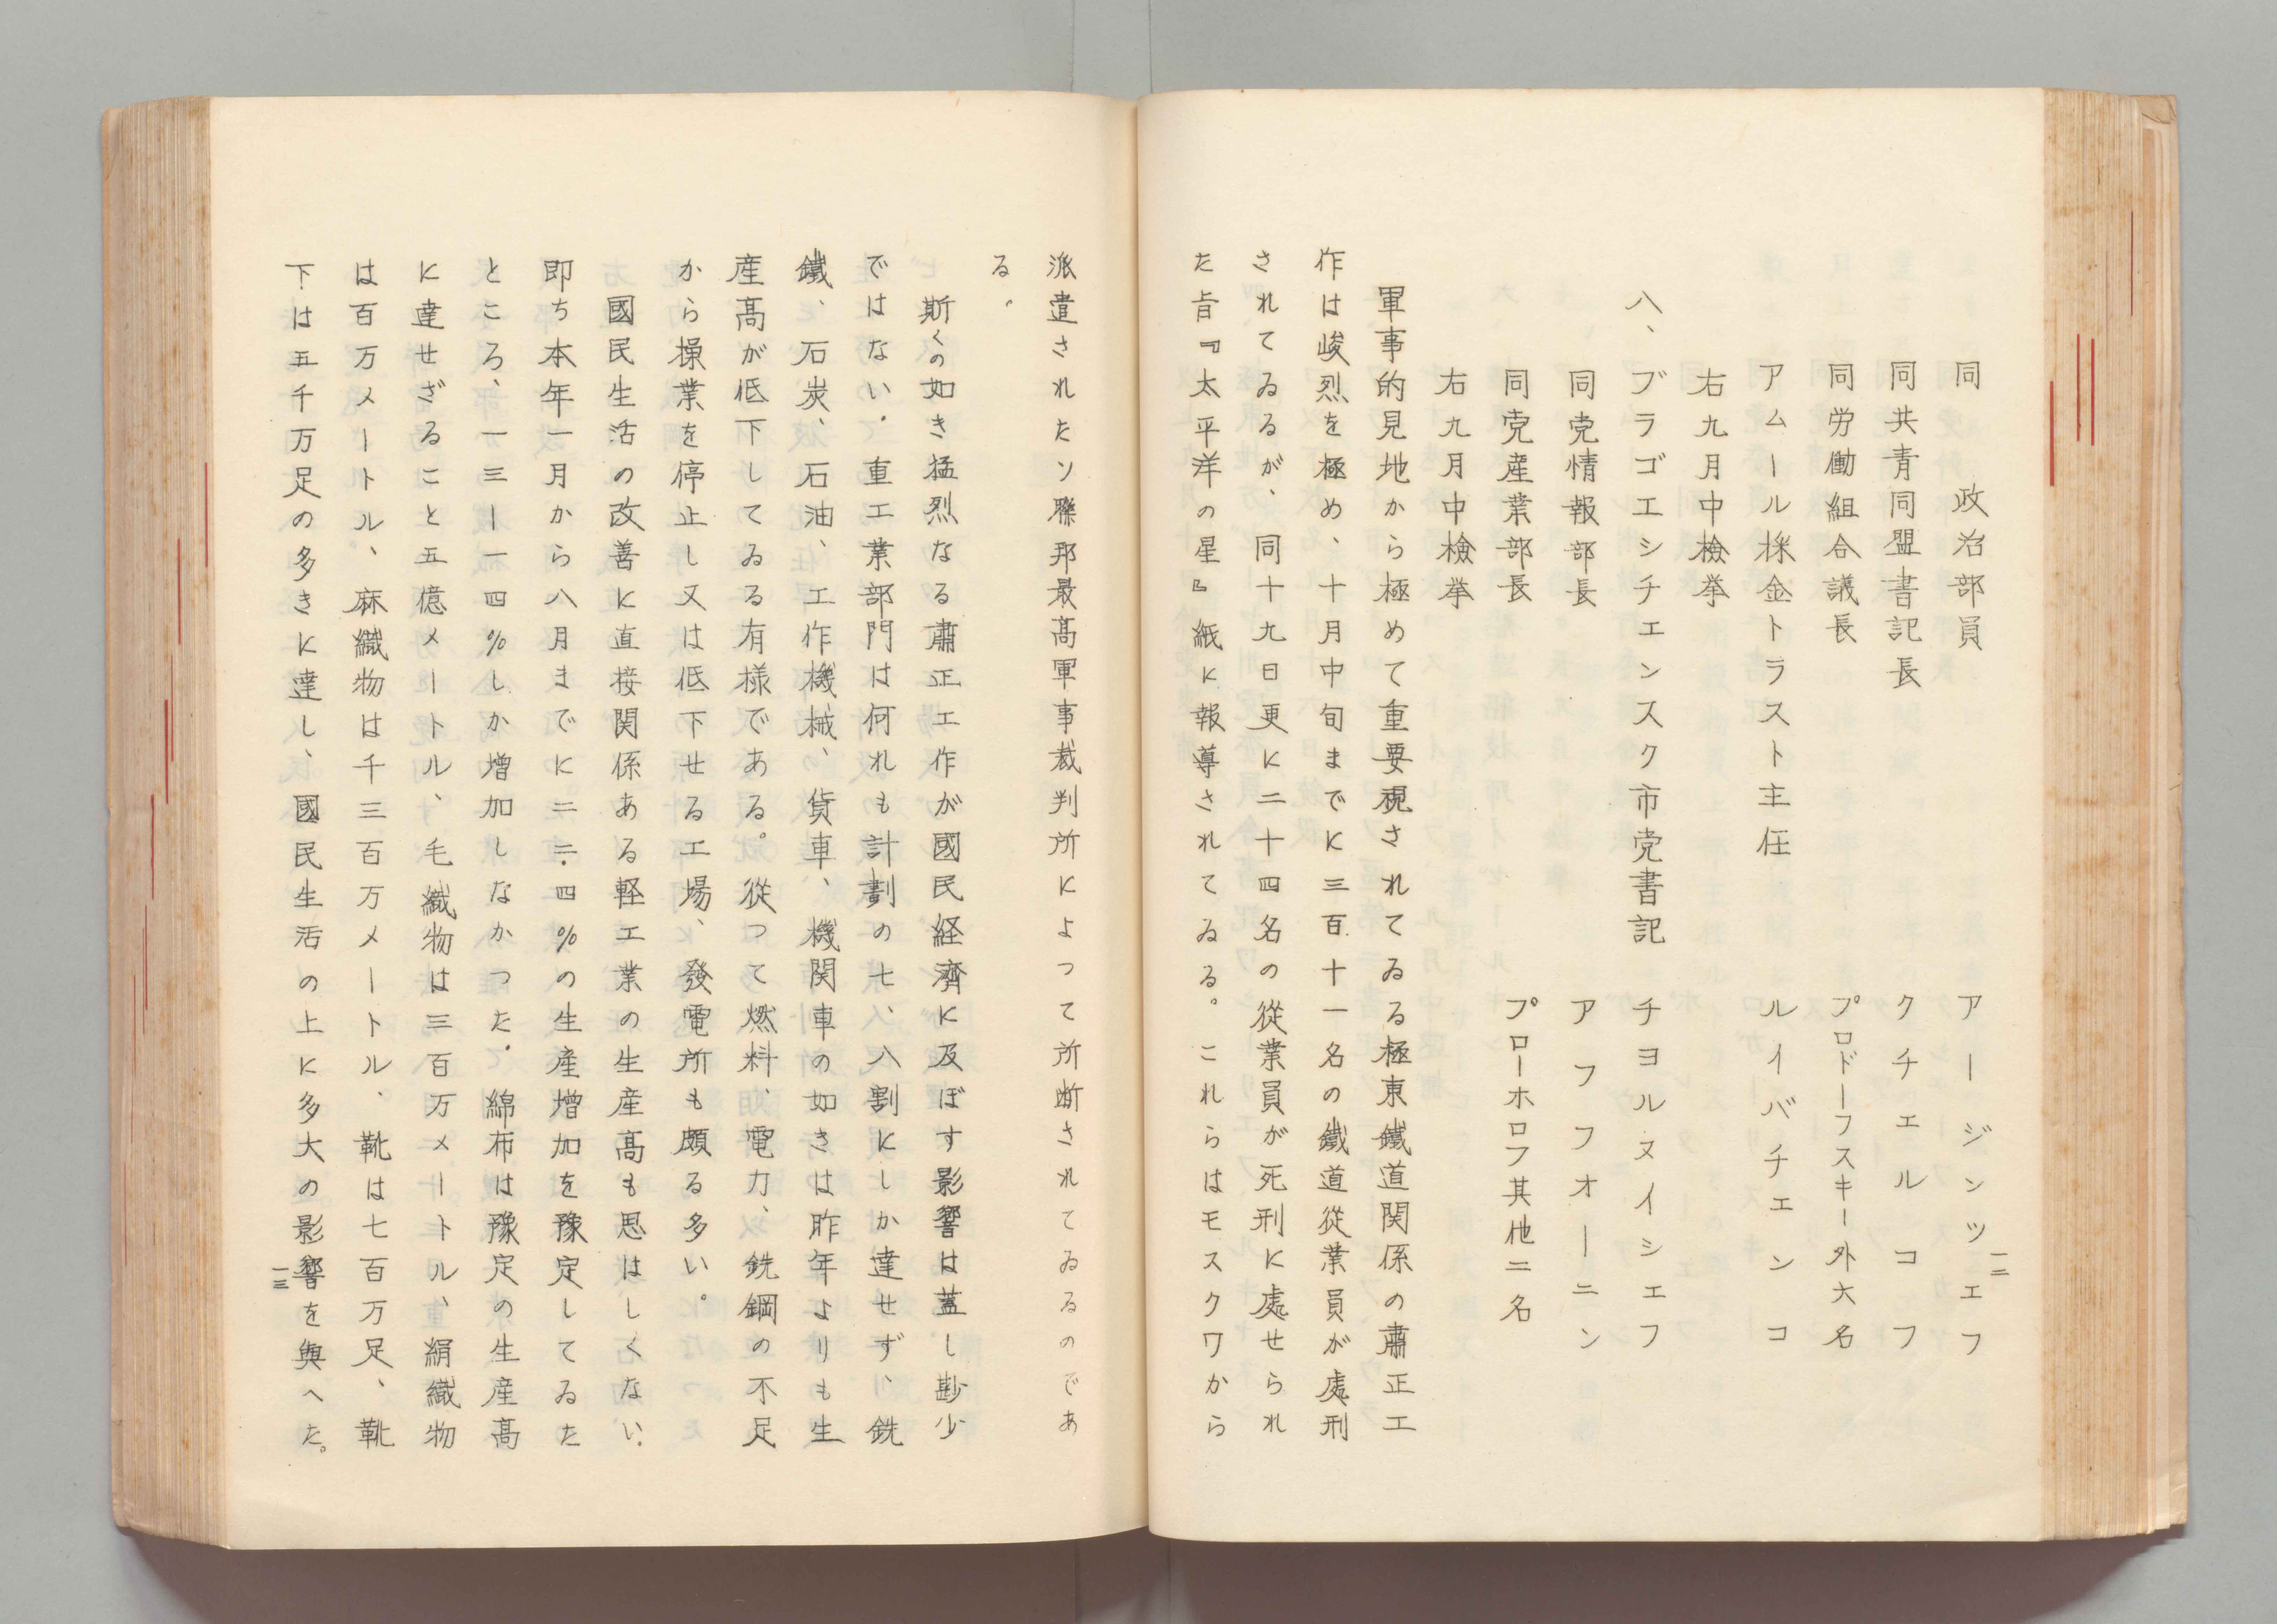 同　政治部員　アージンツェフ
同共青同盟書記長　クチェルコフ
同労働組合議長　プロドーフスキー外六名
アムール採金トラスト主任　ルイバチェンコ
右九月中檢挙
八、ブラゴエシチェンスク市党書記　チヨルヌイシェフ
同党情報部長　アフフオーニン
同党産業部長　プローホロフ其他二名
右九月中檢挙
軍事的見地から極めて重要視されてゐる極東鐵道関係の肅正工
作は峻烈を極め、十月中旬までに三百十一名の鐵道從業員が處刑
されてゐるが、同十九日更に二十四名の從業員が死刑に處せられ
た旨『太平洋の星』紙に報導されてゐる。これらはモスクワから
一二
派遣されたソ聯邦最高軍事裁判所によつて所断されてゐるのであ
る。
斯くの如き猛烈なる肅正工作が國民経濟に及ぼす影響は蓋し尠少
ではない。重工業部門は何れも計劃の七、八割にしか達せず、銑
鐵、石炭、石油、工作機械、貨車、機関車の如きは昨年よりも生
産高が低下してゐる有様である。從つて燃料、電力、銑鋼の不足
から操業を停止し又は低下せる工場、發電所も頗る多い。
國民生活の改善に直接関係ある軽工業の生産高も思はしくない。
即ち本年一月から八月までに二二.四％の生産増加を豫定してゐた
ところ、一三ー一四％しか増加しなかつた。綿布は豫定の生産高
に達せざること五億メートル、毛織物は三百万メートル、絹織物
は百万メートル、麻織物は千三百万メートル、靴は七百万足、靴
下は五千万足の多きに達し、國民生活の上に多大の影響を與へた。
一三